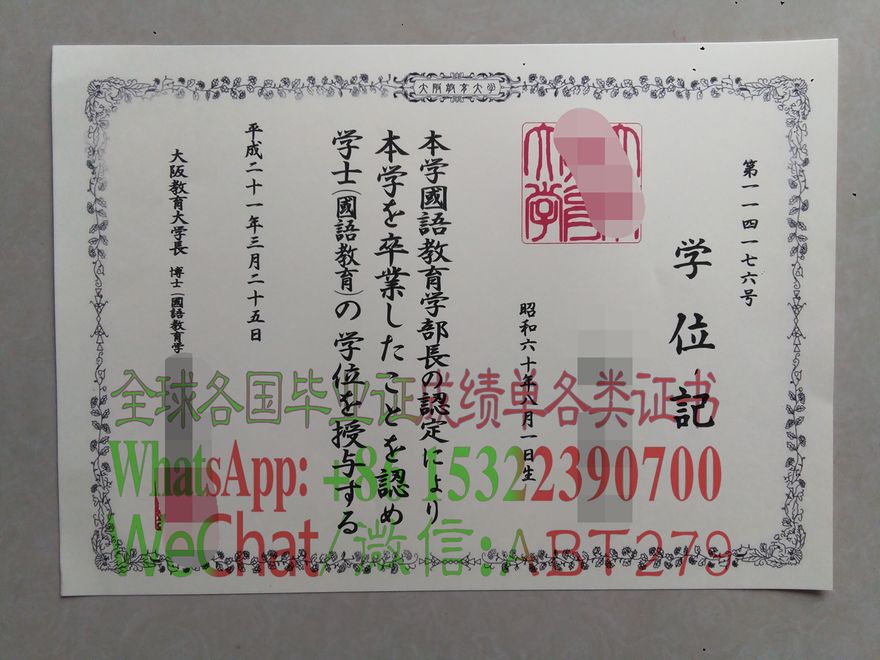 大阪教育大学
第一一四一七六号
学位記
昭和六十年八月一日生
本学國語教育学部長の認定により
本学を卒業したことを認め
学士(國語教育)の学位を授与する
平成二十一年三月二十五日
大阪教育大学長 博士(國語教育学
全球各国毕业证成绩单各类证书
WhatsApp: +86 15322390700
WeChat/微信:ABT279